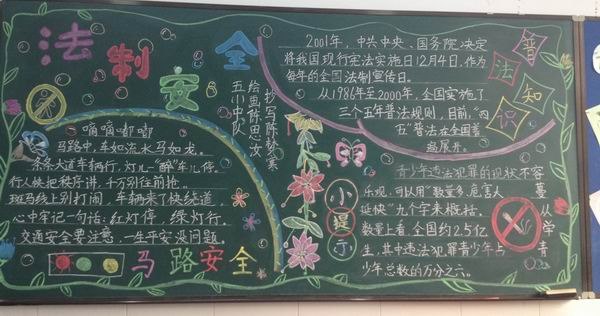 法制安全
嘀嘀嘟嘟
马路中，车如流水马如龙。
条条大道车辆行，灯儿一“醉”车儿停。
行人快把秩序讲，千万别往前抢。
斑马线上别打闹，车辆来了快绕道，
心中牢记一句话：红灯停，绿灯行。
交通安全要注意，一生平安没问题。
马路安全
五小中队
绘画
抄写
2001年，中共中央、国务院决定
将我国现行宪法实施日12月4日，作为
每年的全国法制宣传日。
从1986年至2000年，全国实施了
三个五年普法规则，目前，“四
五”普法在全国蓬
勃展开。
普法知识
小提示
青少年违法犯罪的现状不容
乐观，可以用“数量多，危害人
蔓
延快”九个字来概括。
从
数量上看，全国约2.5亿
学
生，其中违法犯罪青少年占
青
少年总数的万分之六。